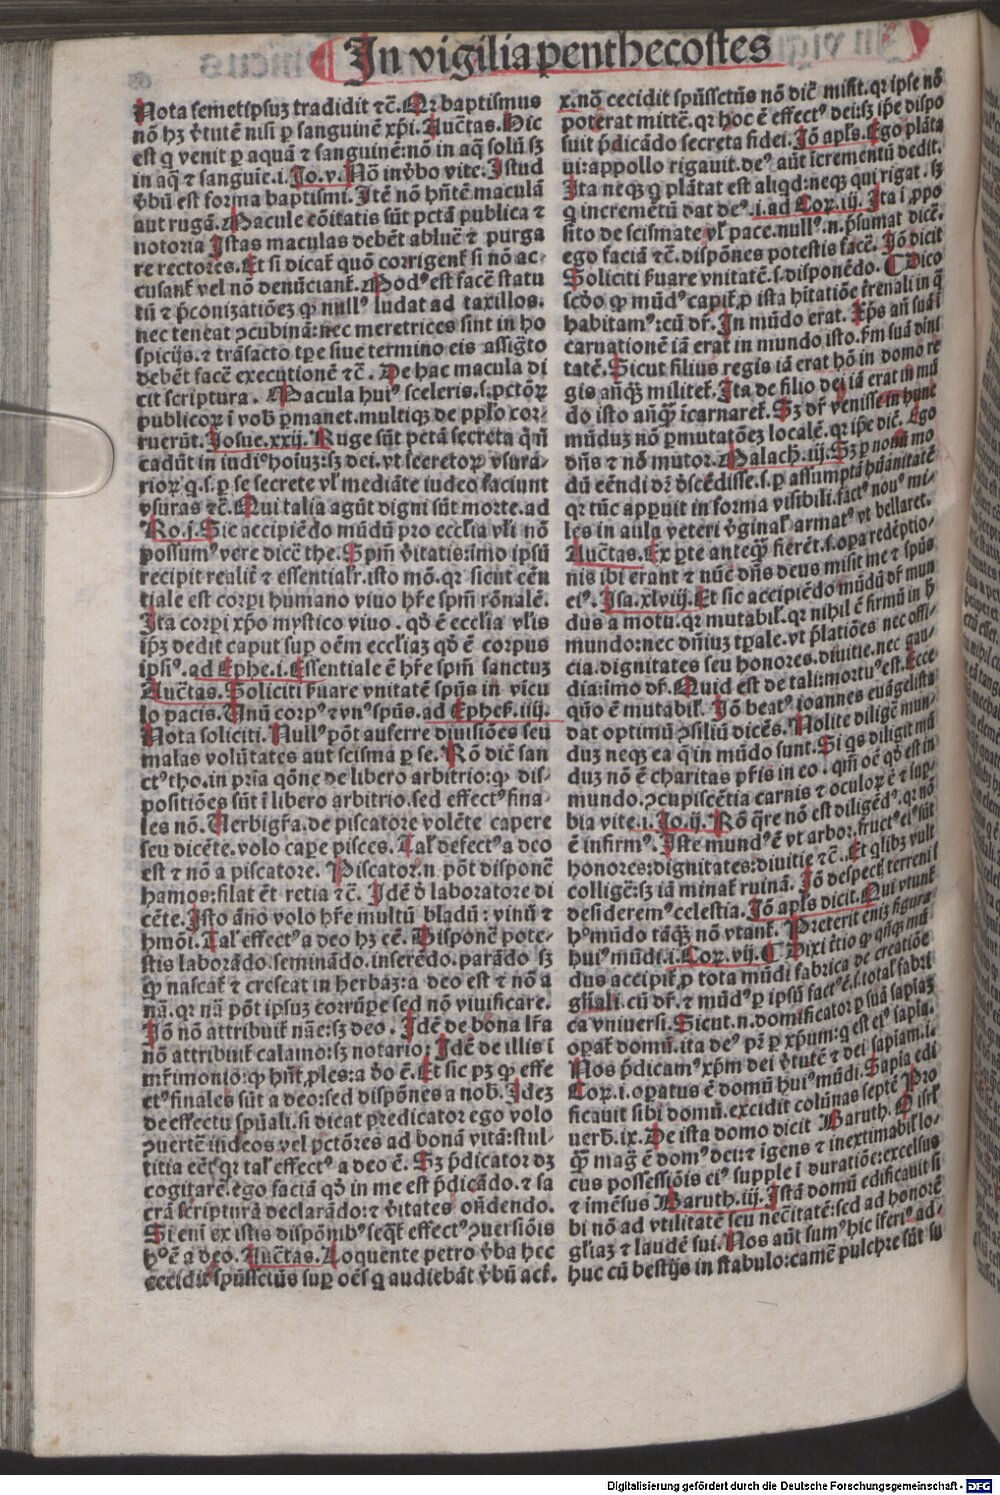 In vigilia penthecostes
Nota semetipsuz tradidit ⁊c̄. Qr baptismus
nō hz v̓tutē nisi p sanguinē xp̄i. Auc̄tas. Hic
est q venit p aquā ⁊ sanguinē: nō in aq̄ solū sz
in aq̄ ⁊ sanguīe. i. Jo. v. Nō in v̓bo vite. Istud
v̓bū est forma baptismi. Itē nō hn̄tē maculā
aut rugā. Macule cōitatis sūt pctā publica ⁊
notoria Istas maculas debēt abluē ⁊ purga
re rectores. Et si dicat̄ quō corrigent̄ si nō ac-
cusant̄ vel nō denūciant̄. Modꝰ est facē statu
tū ⁊ p̄conizatiōez ꝙ nullꝰ ludat ad taxillos.
nec teneat ꝯcubinā: nec meretrices sint in ho
spicijs. ⁊ trāsacto tp̄e siue termino eis assig̓to
debēt facē executionē ⁊c̄. De hac macula di
cit scriptura. Macula huiꝰ sceleris. s. pctōꝝ
publicoꝝ ī vob̄ ꝑmanet. multiqz de pp̄lo cor-
ruerūt. Josue. xxij. Ruge sūt pctā secreta q̄ nī
cadūt in iudiꝰ hoīuz: sz dei. vt secretoꝝ vsura-
rioꝝ q. s. ꝑ se secrete vl̓ mediāte iudeo faciunt
vsuras ⁊c̄. Qui talia agūt digni sūt morte. ad
Ro. j. Sic accipiēdo mūdū pro ecclīa vl̓i nō
possumꝰ vere dicē the. Spm̄ v̓itatis: imo ipsū
recipit realit̄ ⁊ essential̓r. isto mō. qr sicut eēn
tiale est corpi humano viuo hr̄e spm̄ rōnalē.
Ita corpi xp̄o mystico viuo. qd̓ ē ecclīa vl̓is
ip̄z dedit caput sup oēm eccl̓iaz qd̓ ē corpus
ipsiꝰ. ad Ephe. i. Essentiale ē hr̄e spm̄ sanctuz
Auc̄tas. Soliciti s̓uare vnitatē spūs in vicu
lo pacis. Unū corpꝰ ⁊ vnꝰ spūs. ad Ephes̄. iiij.
Nota soliciti. Nullꝰ pōt auferre diuisiōes seu
malas volūtates aut scisma ꝑ se. Rō dic̄ san
ctꝰ tho. in pria qōne de libero arbitrio: ꝙ dis-
positiōes sūt ī libero arbitrio. sed effectꝰ fina-
les nō. Uerbigr̄a. de piscatore volēte capere
seu dicēte. volo cape pisces. Tal̓ defectꝰ a deo
est ⁊ nō a piscatore. Piscator. n. pōt disponē
hamos: filat ēt retia ⁊c̄. Idē d̓ laboratore di
cēte. Isto āno volo hr̄e multū bladū: vinū ⁊
hmōi. Tal̓ effectꝰ a deo hz eē. Disponē pote-
stis laborādo. seminādo. inserēdo. parādo sz
ꝙ nascat̄ ⁊ crescat in herbaz: a deo est ⁊ nō a
nā. qr nā pōt ipsuz corrūpe sed nō viuificare.
Iō nō attribuit̄ nāe: sz deo. Idē de bona lr̄a
nō attribuit̄ calamo: sz notario: Idē de illis ī
mr̄imonio: ꝙ hn̄t ꝓles: a d̓o ē. Et sic pz ꝙ effe
ctꝰ finales sūt a deo: sed dispōnes a nob̄. Idez
de effectu spūali. si dicat predicator ego volo
ꝯuertē iudeos vel pctōres ad bonā vitā: stul-
titia eēt qr tal̓ effectꝰ a deo ē. Sz p̄dicator dz
cogitare. ego faciā qd̓ in me est p̄dicādo. ⁊ sa
crā scripturā declarādo: ⁊ v̓itates on̄dendo.
Si enī ex istis dispōnibꝰ seqt̄ effectꝰ ꝯuersiōis
hꝰ ē a deo. Auc̄tas. Loquente petro v̓ba hec
cecidit spūssctūs sup oēs q audiebāt v̓bū act̄.
x. nō cecidit spūssctūs nō dic̄ misit. qr ipse nō
poterat mittē. qr hoc ē effectꝰ dei: sz ip̄e dispo
suit p̄dicādo secreta fidei. Iō apl̄s. Ego plāta
ui: appollo rigauit. deꝰ aūt īcrementū dedit.
Ita neqz q plātat est aliqd: neqz qui rigat. sz
q incremētū dat deꝰ. i. ad Cor. iij. Ita ī ꝓpo
sito de scismate vl̓ pace. nullꝰ. n. p̄sumat dicē.
ego faciā ⁊c̄. dispōnes potestis facē. Iō dicit
Soliciti s̓uare vnitatē. s. disponēdo. Dico
scd̓o ꝙ mūdꝰ capit̄ ꝑ ista hitatiōe t̄renali in q̄
habitamꝰ: cū dr̄. In mūdo erat. Xp̄s añ suā ī
carnationē iā erat in mundo isto. ꝑm suā diui
tatē. Sicut filius regis iā erat hō in domo re
gis anq̄z militet̄. Ita de filio dei iā erat in mū
do isto anq̄z īcarnaret̄. Sz dr̄ venisse in hunc
mūduz nō ꝑmutatōez localē. qr ip̄e dic̄. Ego
dn̄s ⁊ nō mutor. Malach̄. iij. Sz ꝑ nouū mo
dū eēndi dr̄ d̓scēdisse. s. ꝑ assumptā hūanitatē
qr tūc appuit in forma visibili. factꝰ nouꝰ mi-
les in aula veteri v̓ginal̓ armatꝰ vt bellaret.
Auc̄tas. Ex pte anteq̄ fierēt. s. opa redēptio-
nis ibi erant ⁊ nūc dn̄s deus misit me ⁊ spūs
eiꝰ. Isa. xlviij. Et sic accipiēdo mūdū dr̄ mun
dus a motu. qr mutabil̓. qr nihil ē firmū in h̄
mundo: nec dn̄iuz tpale. vt p̄latiōes nec offi-
cia. dignitates seu honores. diuitie. nec gau-
dia: imo dr̄. Quid est de tali: mortuꝰ est. Ecce
quō ē mutabil̓. Iō beatꝰ ioannes euāgelista
dat optimū ꝯsiliū dicēs. Nolite diligē mun-
duz neqz ea q̄ in mūdo sunt. Si qs diligit mū
duz nō ē charitas pr̄is in eo. qm̄ oē qd̓ est in
mundo. ꝯcupiscētia carnis ⁊ oculoꝝ ē ⁊ sup-
bia vite. i. Jo. ij. Rō q̄re nō est diligēdꝰ. qr nō
ē infirmꝰ. Iste mundꝰ ē vt arbor. fructꝰ eiꝰ sūt
honores: dignitates: diuitie ⁊c̄. Et qlibz vult
colligē: sz iā minat̄ ruinā. Iō despect̄ terreni ī
desideremꝰ celestia. Iō apl̄s dicit. Qui vtunt̄
hꝰ mūdo tāq̄z nō vtant̄. Preterit enīz figura
huiꝰ mūdi. i. Cor. vij. Dixi t̄tio ꝙ qñqz mū
dus accipit̄ ꝑ tota mūdi fabrica de creatiōe
gn̄ali. cū dr̄. ⁊ mūdꝰ ꝑ ipsū factꝰ ē. s. total̓ fabri
ca vniuersi. Sicut. n. domificator ꝑ suā sapiaz
opat̄ domū. ita deꝰ pr̄ ꝑ xp̄um: q est eiꝰ sapīa.
Nos p̄dicamꝰ xp̄m dei v̓tutē ⁊ dei sapiam. i.
Cor. i. opatus ē domū huiꝰ mūdi. Sapīa edi
ficauit sibi domū. excidit colūnas septē Pro
uerb̄. ix. De ista domo dicit Baruth. O isrl̓
q̄ mag̓ ē domꝰ dei: ⁊ īgens ⁊ inextimabil̓ lo-
cus possessiōis eiꝰ supple ī duratiōe: excelsus
⁊ imēsus Baruth. iij. Istā domū edificauit si
bi nō ad vtilitatē seu nec̄itatē: sed ad honorē
gl̄iaz ⁊ laudē sui. Nos aūt sumꝰ hic īferiꝰ ad-
huc cū bestijs in stabulo: camē pulchre sūt su
Digitalisierung gefördert durch die Deutsche Forschungsgemeinschaft - DFG